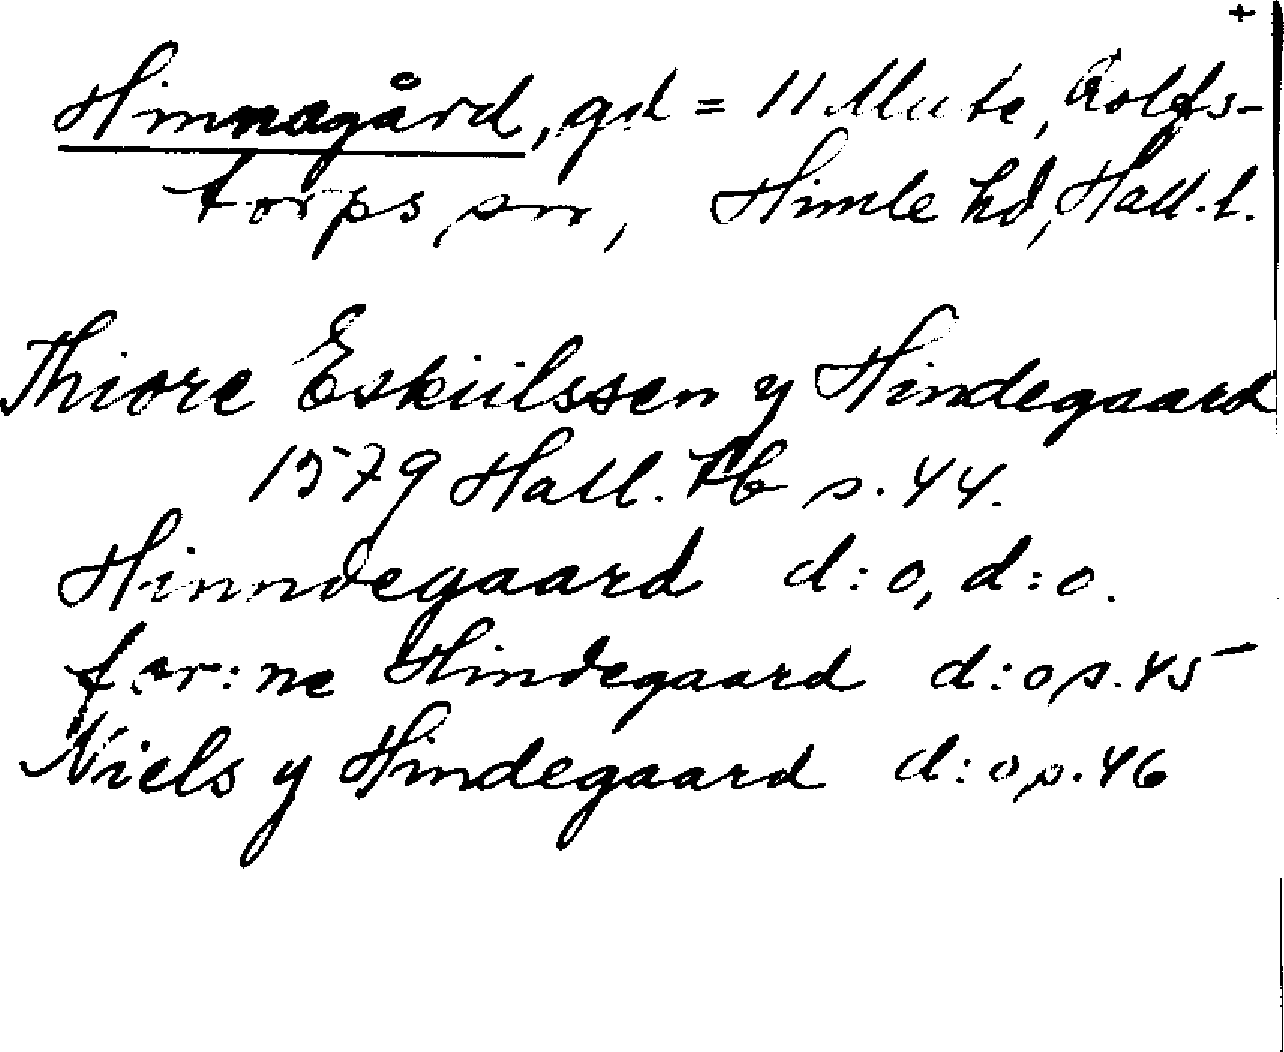 +
Hinnagård, gd = 11 Mute, Rolfs-
torps sn, Himle hd, Hall. l.
Thiore Eskiilssen y Hindegaard
1579 Hall. Tb s. 44.
Hinndegaard d:o, d:o.
for:ne Hindegaard d:o s. 45
Niels y Hindegaard d:o s. 46